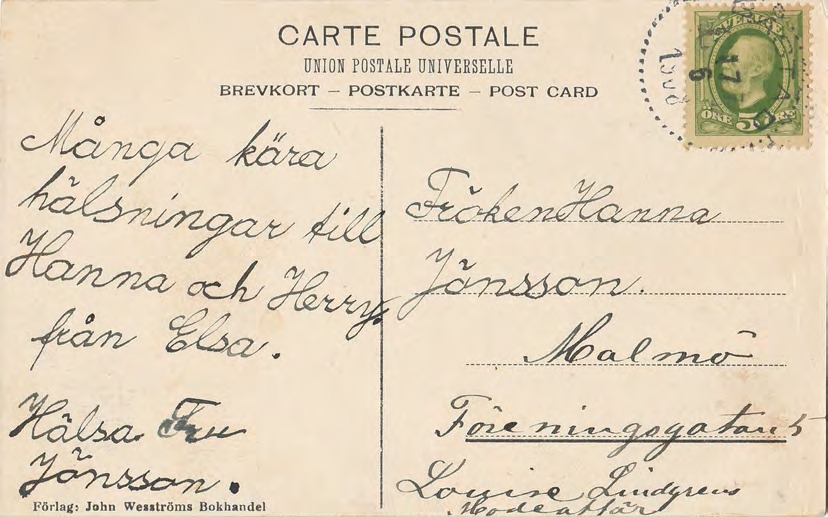 CARTE POSTALE
UNION POSTALE UNIVERSELLE
BREVKORT – POSTKARTE – POST CARD
Många kära
hälsningar till
Hanna och Herry.
från Elsa.
Hälsa Fru
Jönsson.
Förlag: John Wesströms Bokhandel
SVERIGE
ÖRE 5 ÖRE
17
6
Fröken Hanna
Jönsson.
Malmö
Föreningsgatan 5
Louise Lindgrens
Modeaffär